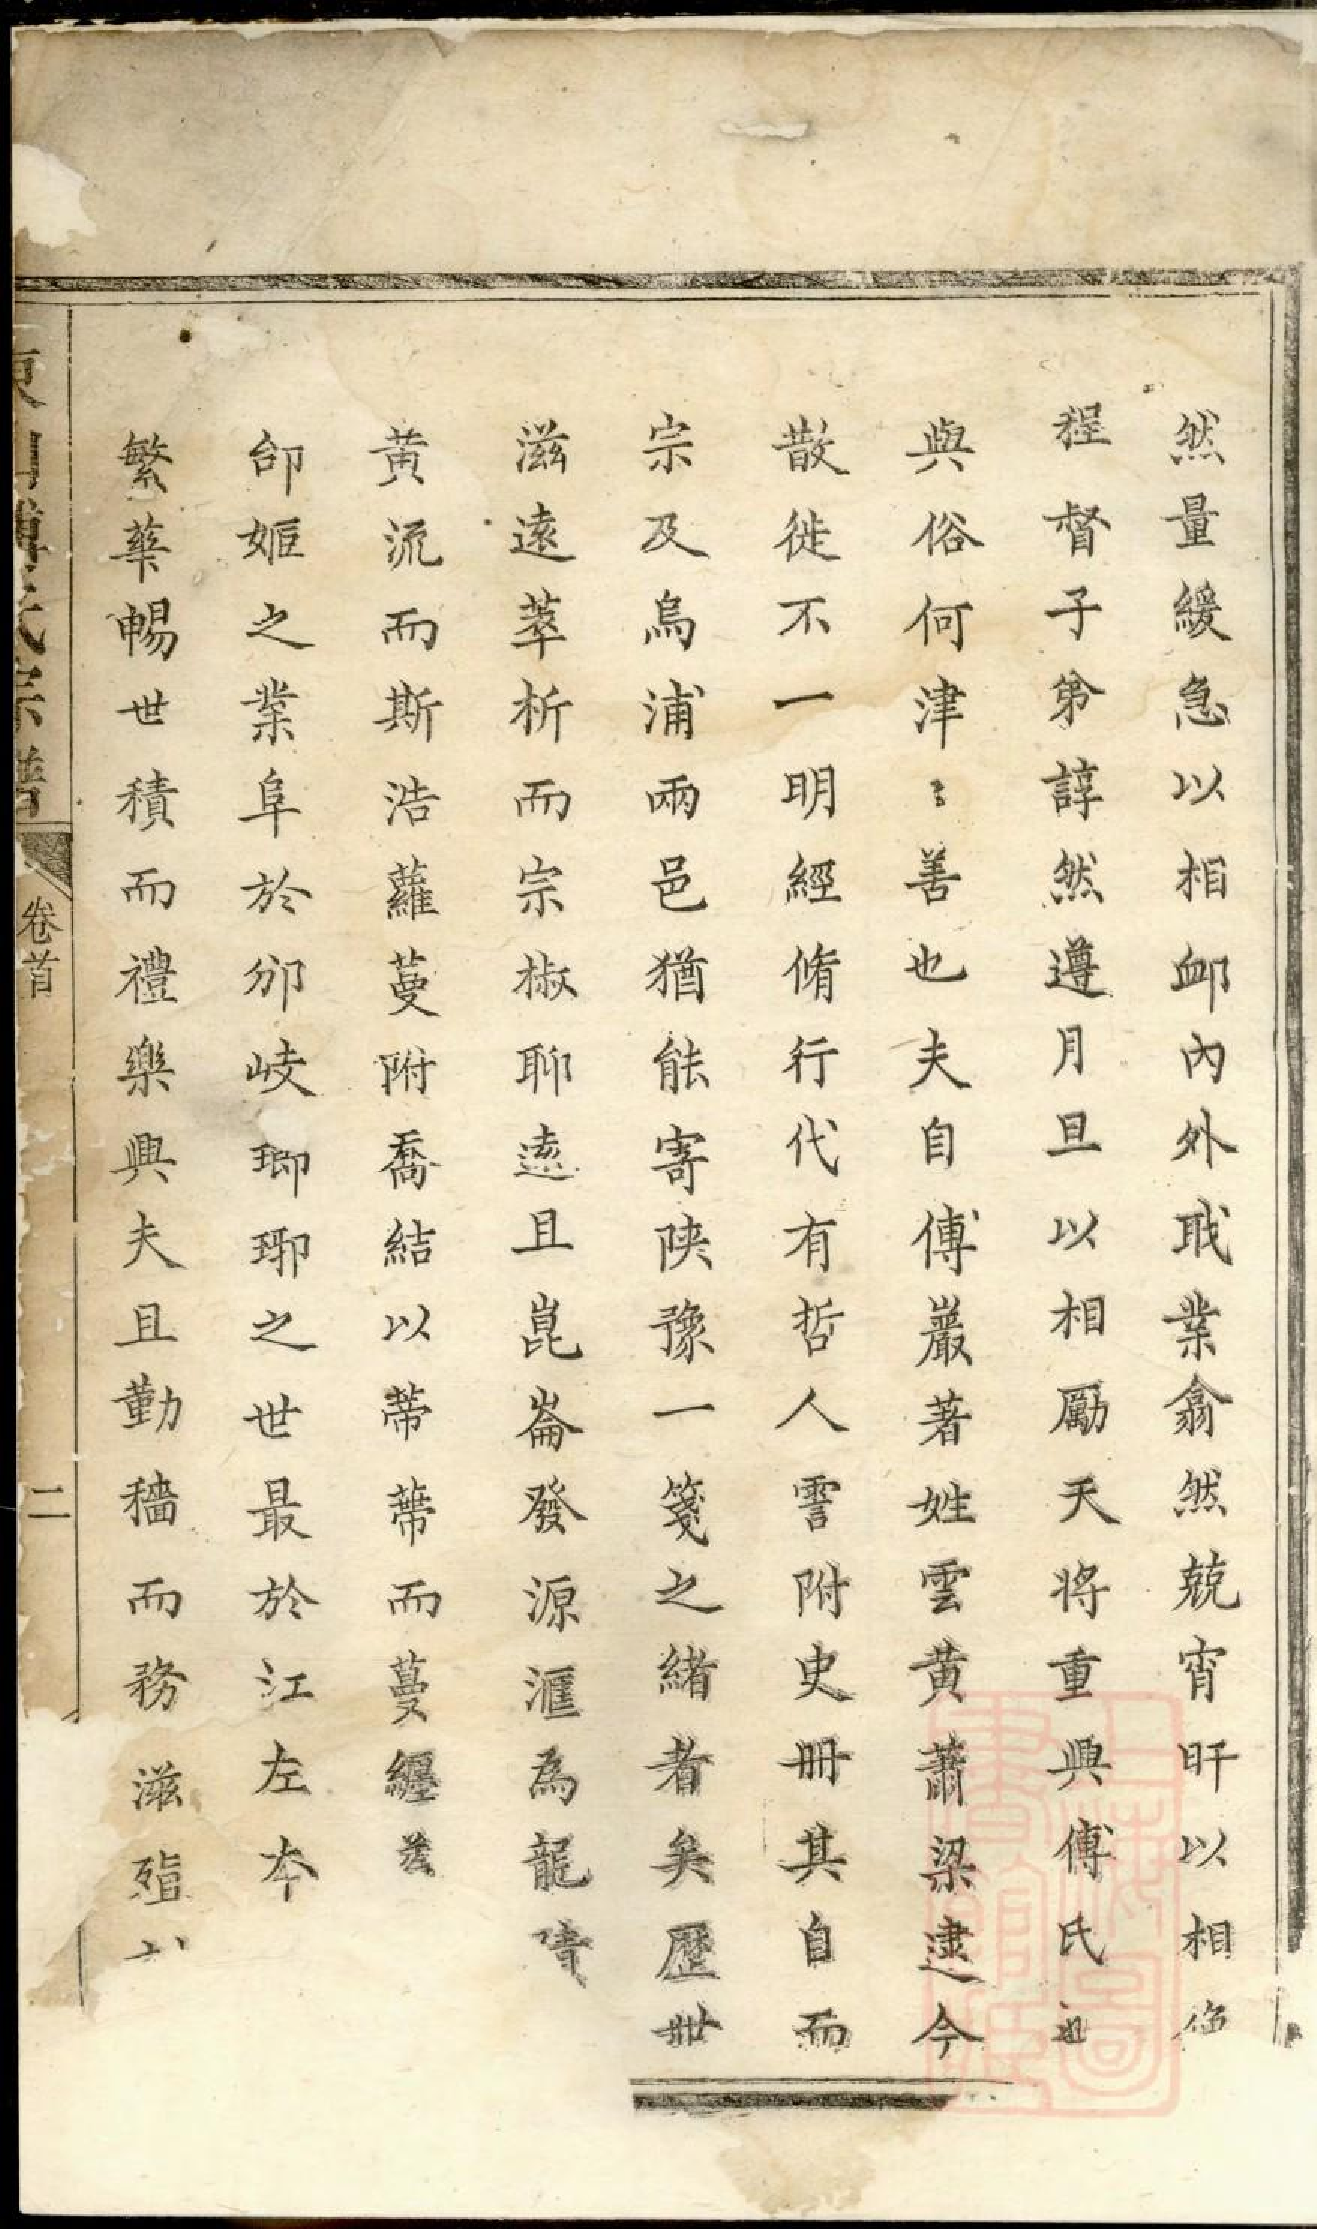 然量緩急以相卹內外職業翕然兢宵旰以相
程督子弟諄然遵月旦以相勵天將重興傅氏
與俗何津〻善也夫自傅巖著姓雲黃蕭梁逮今
散徙不一明經脩行代有哲人讆附史冊其自而
宗及烏浦兩邑猶能寄陝豫一箋之緒者矣歷世
滋遠萃析而宗椒聊遠且崑崙發源滙為龍
黃流而斯浩蘿蔓附喬結以蒂蒂而蔓纏
邰姬之業阜於邠岐瑯琊之世最於江左本
繁華暢世積而禮樂興夫且勤穡而務滋殖
東 傅氏宗譜
卷首
二